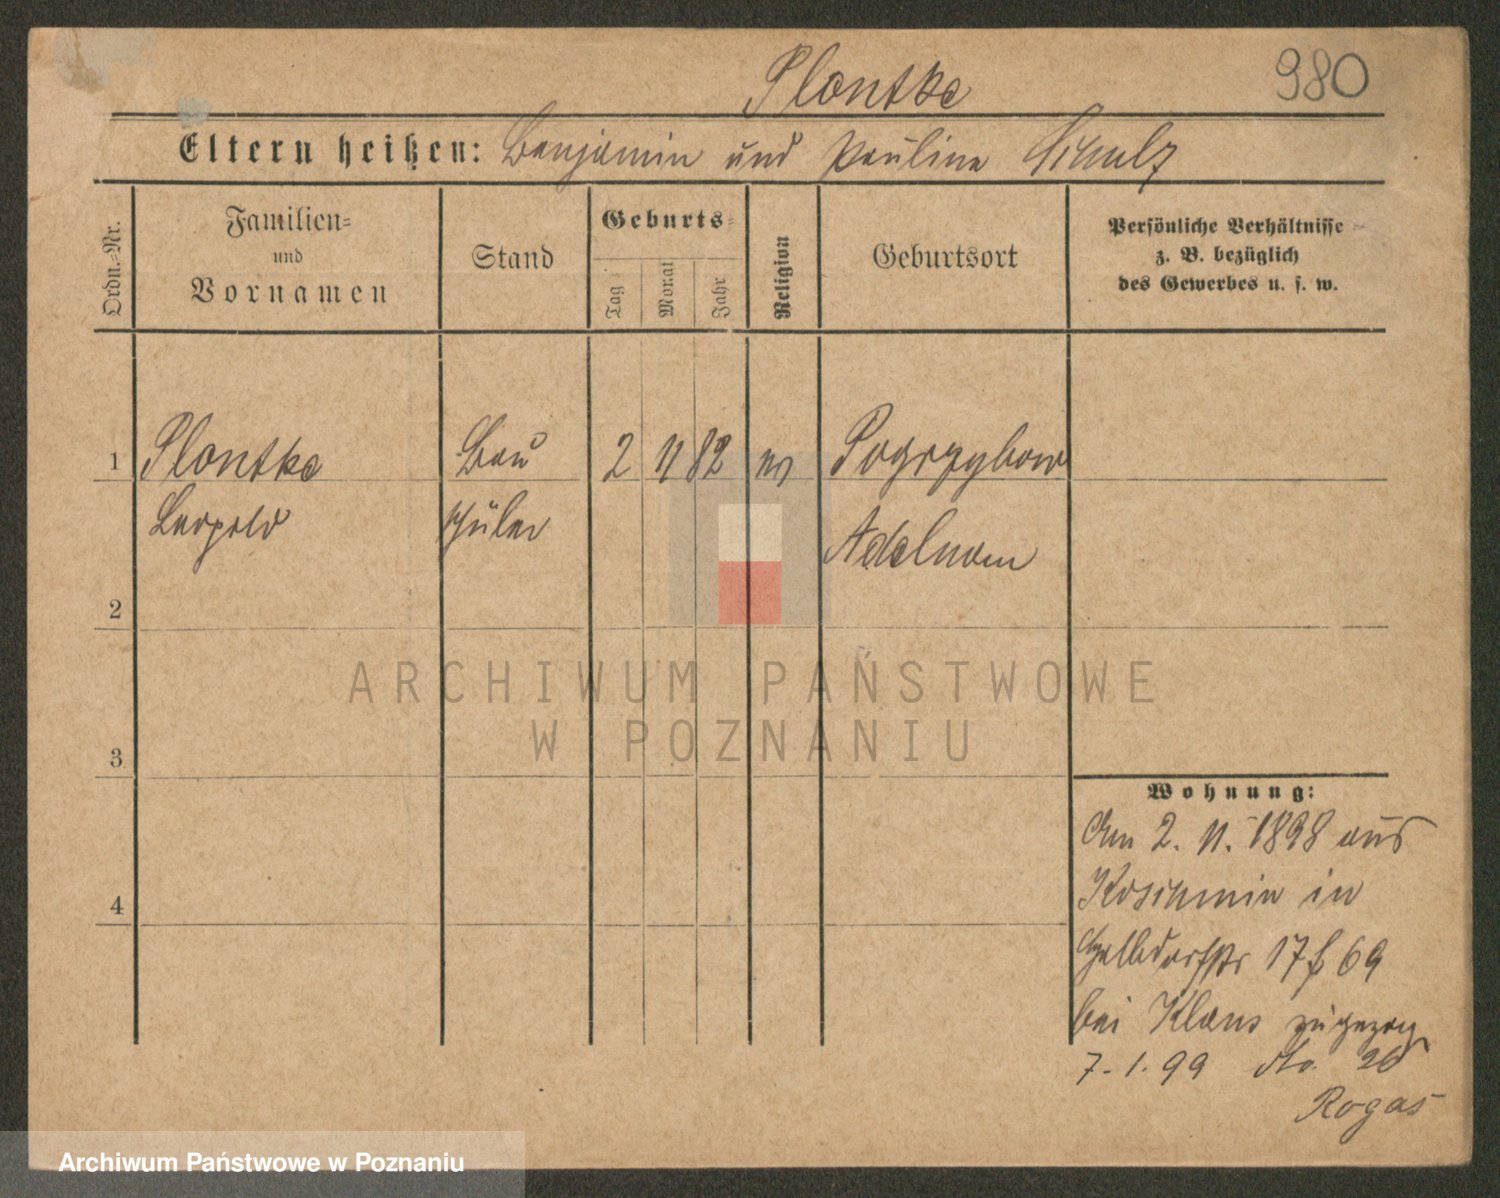 Plontke
980
Eltern heißen: Benjamin und Pauline Schulz
Ordn.-Nr.
Familien-
und
Vornamen
Stand
Geburts-
Tag
Monat
Jahr
Religion
Geburtsort
Persönliche Verhältnisse
z. B. bezüglich
des Gewerbes u. s. w.
1 Plontke Bau 2 11 82 ev Pogrzybow
Leopold schüler Adelnau
2
3
4
ARCHIWUM PAŃSTWOWE
W POZNANIU
Wohnung:
Am 2. 11. 1898 aus
Koschmin in
17 69
bei Klaus zugezog
7. 1. 99 do. 26
Rogas
Archiwum Państwowe w Poznaniu